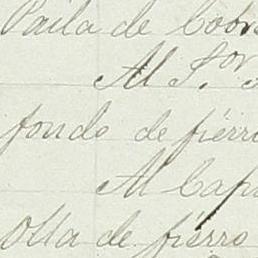 Paila de Cobr
Al S.or
fondo de fiérr
Al Cap
Olla de fiérro